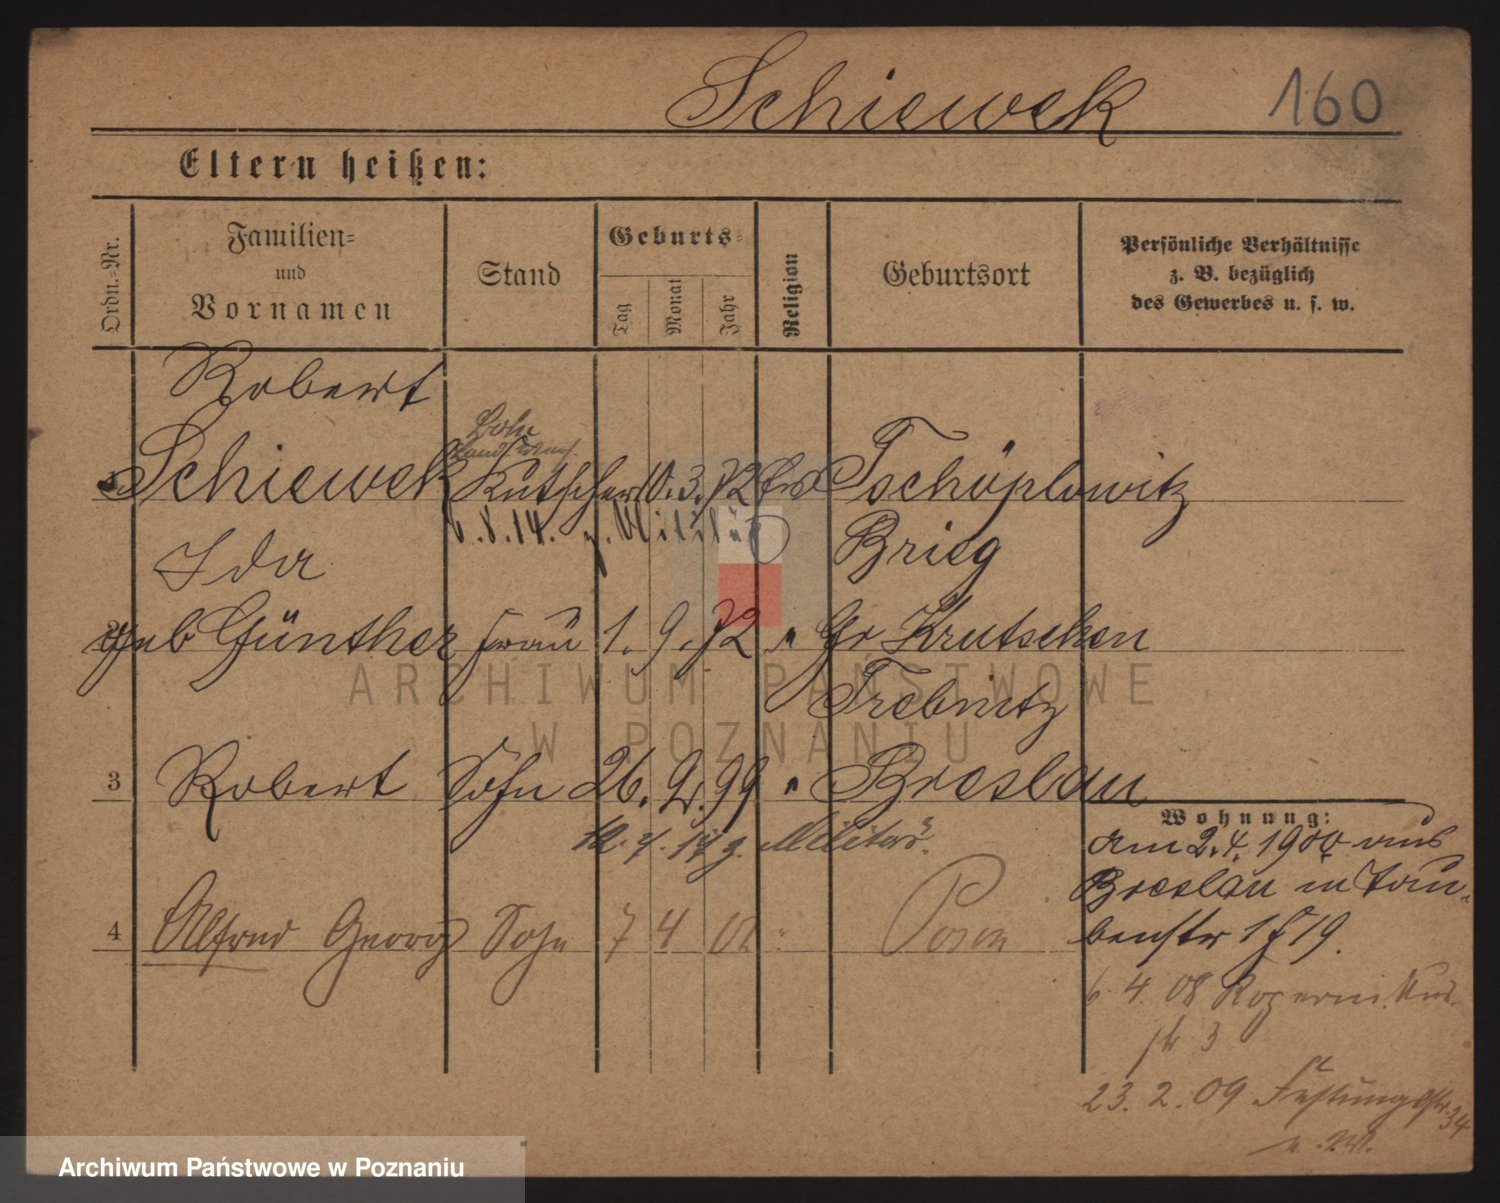 Schiewek 160
Eltern heißen:
Ordn.-Nr.
Familien-
und
Vornamen
Stand
Geburts-
Tag
Monat
Jahr
Religion
Geburtsort
Persönliche Verhältnisse
z. B. bezüglich
des Gewerbes u. s. w.
Robert
Schiewek Kutscher 10. 3. 72 Tschöplowitz
6.8.14. z. Militär Brieg
Ida
geb Günther Frau 1. 9. 72 " Gr Krutschen
Trebnitz
3 Robert Sohn 26. 9. 99 " Breslau
Militär.
Wohnung:
am 2.4.1900 aus
Breslau in Tau-
benstr 1 f 19.
4 Alfred Georg Sohn 7 4 02 " Posen
6. 4. 08 Kopernikus-
str 3
23. 2. 09 Festungsstr. 34
ARCHIWUM PAŃSTWOWE
W POZNANIU
Archiwum Państwowe w Poznaniu